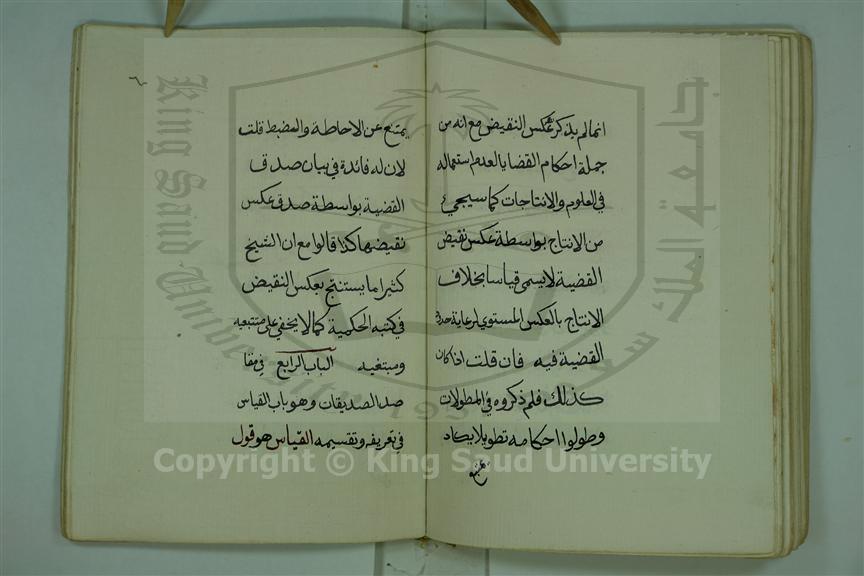 انما لم يذكر عكس النقيض مع انه من
جملة احكام القضايا لعدم استعماله
في العلوم والانتاجات كما سيجيء
من الانتاج بواسطة عكس نقيض
القضية لا يسمى قياسا بخلاف
الانتاج بالعكس المستوي لرعاية حدة
القضية فيه فان قلت اذا كان
كذلك فلم ذكروه في المطولات
وطولوا احكامه تطويلا يكاد
يمتنع
٦
يمتنع عن الاحاطة والضبط قلت
لان له فائدة في بيان صدق
القضية بواسطة صدق عكس
نقيضها كذا قالوا مع ان الشيخ
كثيرا ما يستنتج بعكس النقيض
في كتبه الحكمية كما لا يخفى على متتبعيه
ومبتغيه الباب الرابع في مقا
صد الصديقات وهو باب القياس
في تعريفه وتقسيمه القياس هو قول
King Saud University
جامعة الملك سعود
1957
Copyright © King Saud University